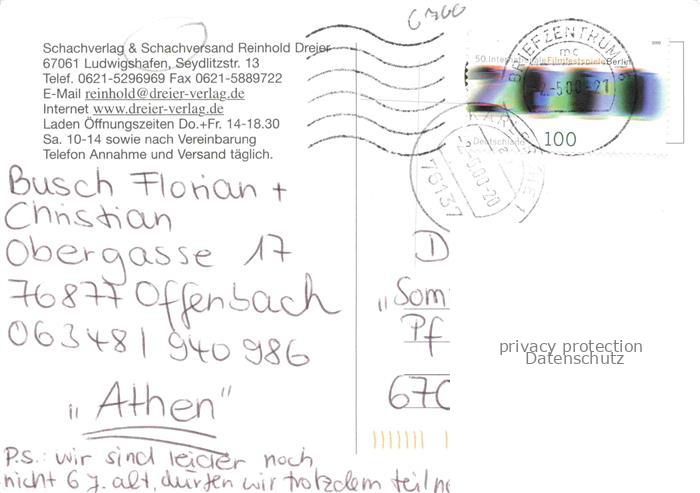 6700
Schachverlag & Schachversand Reinhold Dreier
67061 Ludwigshafen, Seydlitzstr. 13
Telef. 0621-5296969 Fax 0621-5889722
E-Mail reinhold@dreier-verlag.de
Internet www.dreier-verlag.de
Laden Öffnungszeiten Do.+Fr. 14-18.30
Sa. 10-14 sowie nach Vereinbarung
Telefon Annahme und Versand täglich.
50. Internationale Filmfestspiele Berlin
2000
BRIEFZENTRUM
mc
-2.-5.00-21
Deutschland
100
76137
-2.-5.00-20
Busch Florian +
Christian
Obergasse 17
76877 Offenbach
06348 / 940 986
"Athen"
P.S.: wir sind leider noch
nicht 6 J. alt, dürfen wir trotzdem teilne
D
"Som
Pf
670
privacy protection
Datenschutz